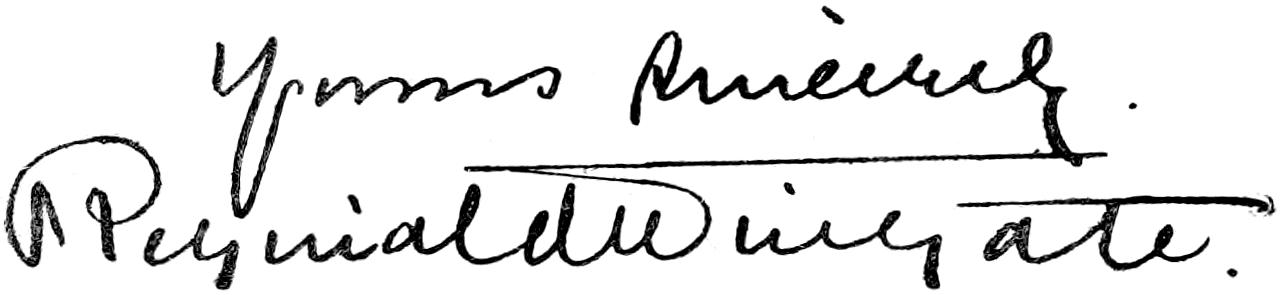 Yours sincerely.
Reginald Wingate.